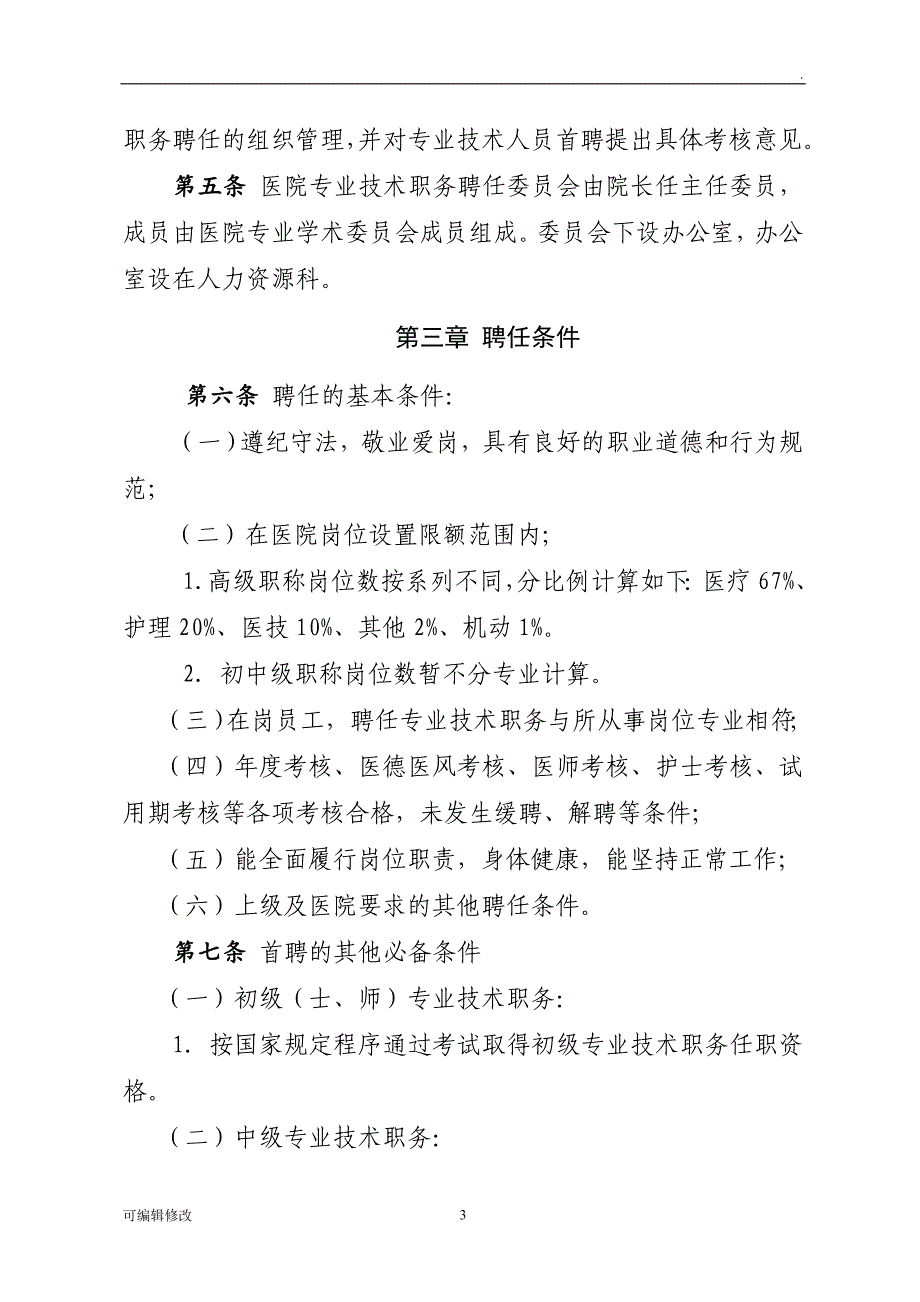 .
职务聘任的组织管理，并对专业技术人员首聘提出具体考核意见。
第五条 医院专业技术职务聘任委员会由院长任主任委员，
成员由医院专业学术委员会成员组成。委员会下设办公室，办公
室设在人力资源科。
第三章 聘任条件
第六条 聘任的基本条件：
（一）遵纪守法，敬业爱岗，具有良好的职业道德和行为规
范；
（二）在医院岗位设置限额范围内；
1.高级职称岗位数按系列不同，分比例计算如下：医疗 67%、
护理 20%、医技 10%、其他 2%、机动 1%。
2. 初中级职称岗位数暂不分专业计算。
（三）在岗员工，聘任专业技术职务与所从事岗位专业相符；
（四）年度考核、医德医风考核、医师考核、护士考核、试
用期考核等各项考核合格，未发生缓聘、解聘等条件；
（五）能全面履行岗位职责，身体健康，能坚持正常工作；
（六）上级及医院要求的其他聘任条件。
第七条 首聘的其他必备条件
（一）初级（士、师）专业技术职务：
1. 按国家规定程序通过考试取得初级专业技术职务任职资
格。
（二）中级专业技术职务：
可编辑修改 3